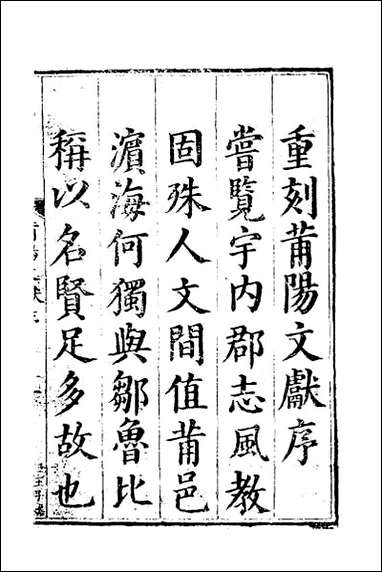 重刻莆陽文獻序
嘗覽宇内郡志風教
固殊人文間值莆邑
濵海何獨與鄒魯比
稱以名賢足多故也